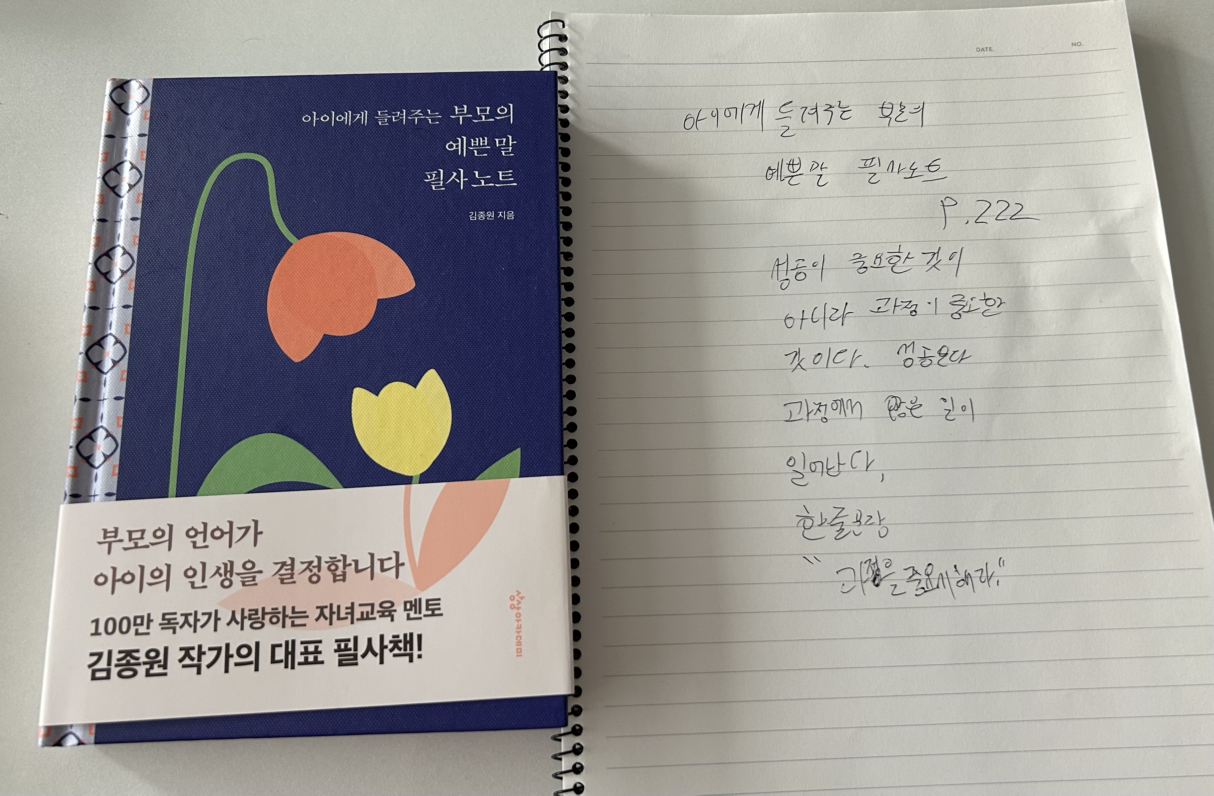 아이에게 들려주는 부모의
예쁜 말
필사 노트
김종원 지음
부모의 언어가
아이의 인생을 결정합니다
100만 독자가 사랑하는 자녀교육 멘토
김종원 작가의 대표 필사책!
상상아카데미
DATE.
NO.
아이에게 들려주는 부모의
예쁜 말 필사노트
P.222
성공이 중요한 것이
아니라 과정이 중요한
것이다. 성공보다
과정에서 많은 일이
일어난다,
한줄문장
"과정을 중요시해라."